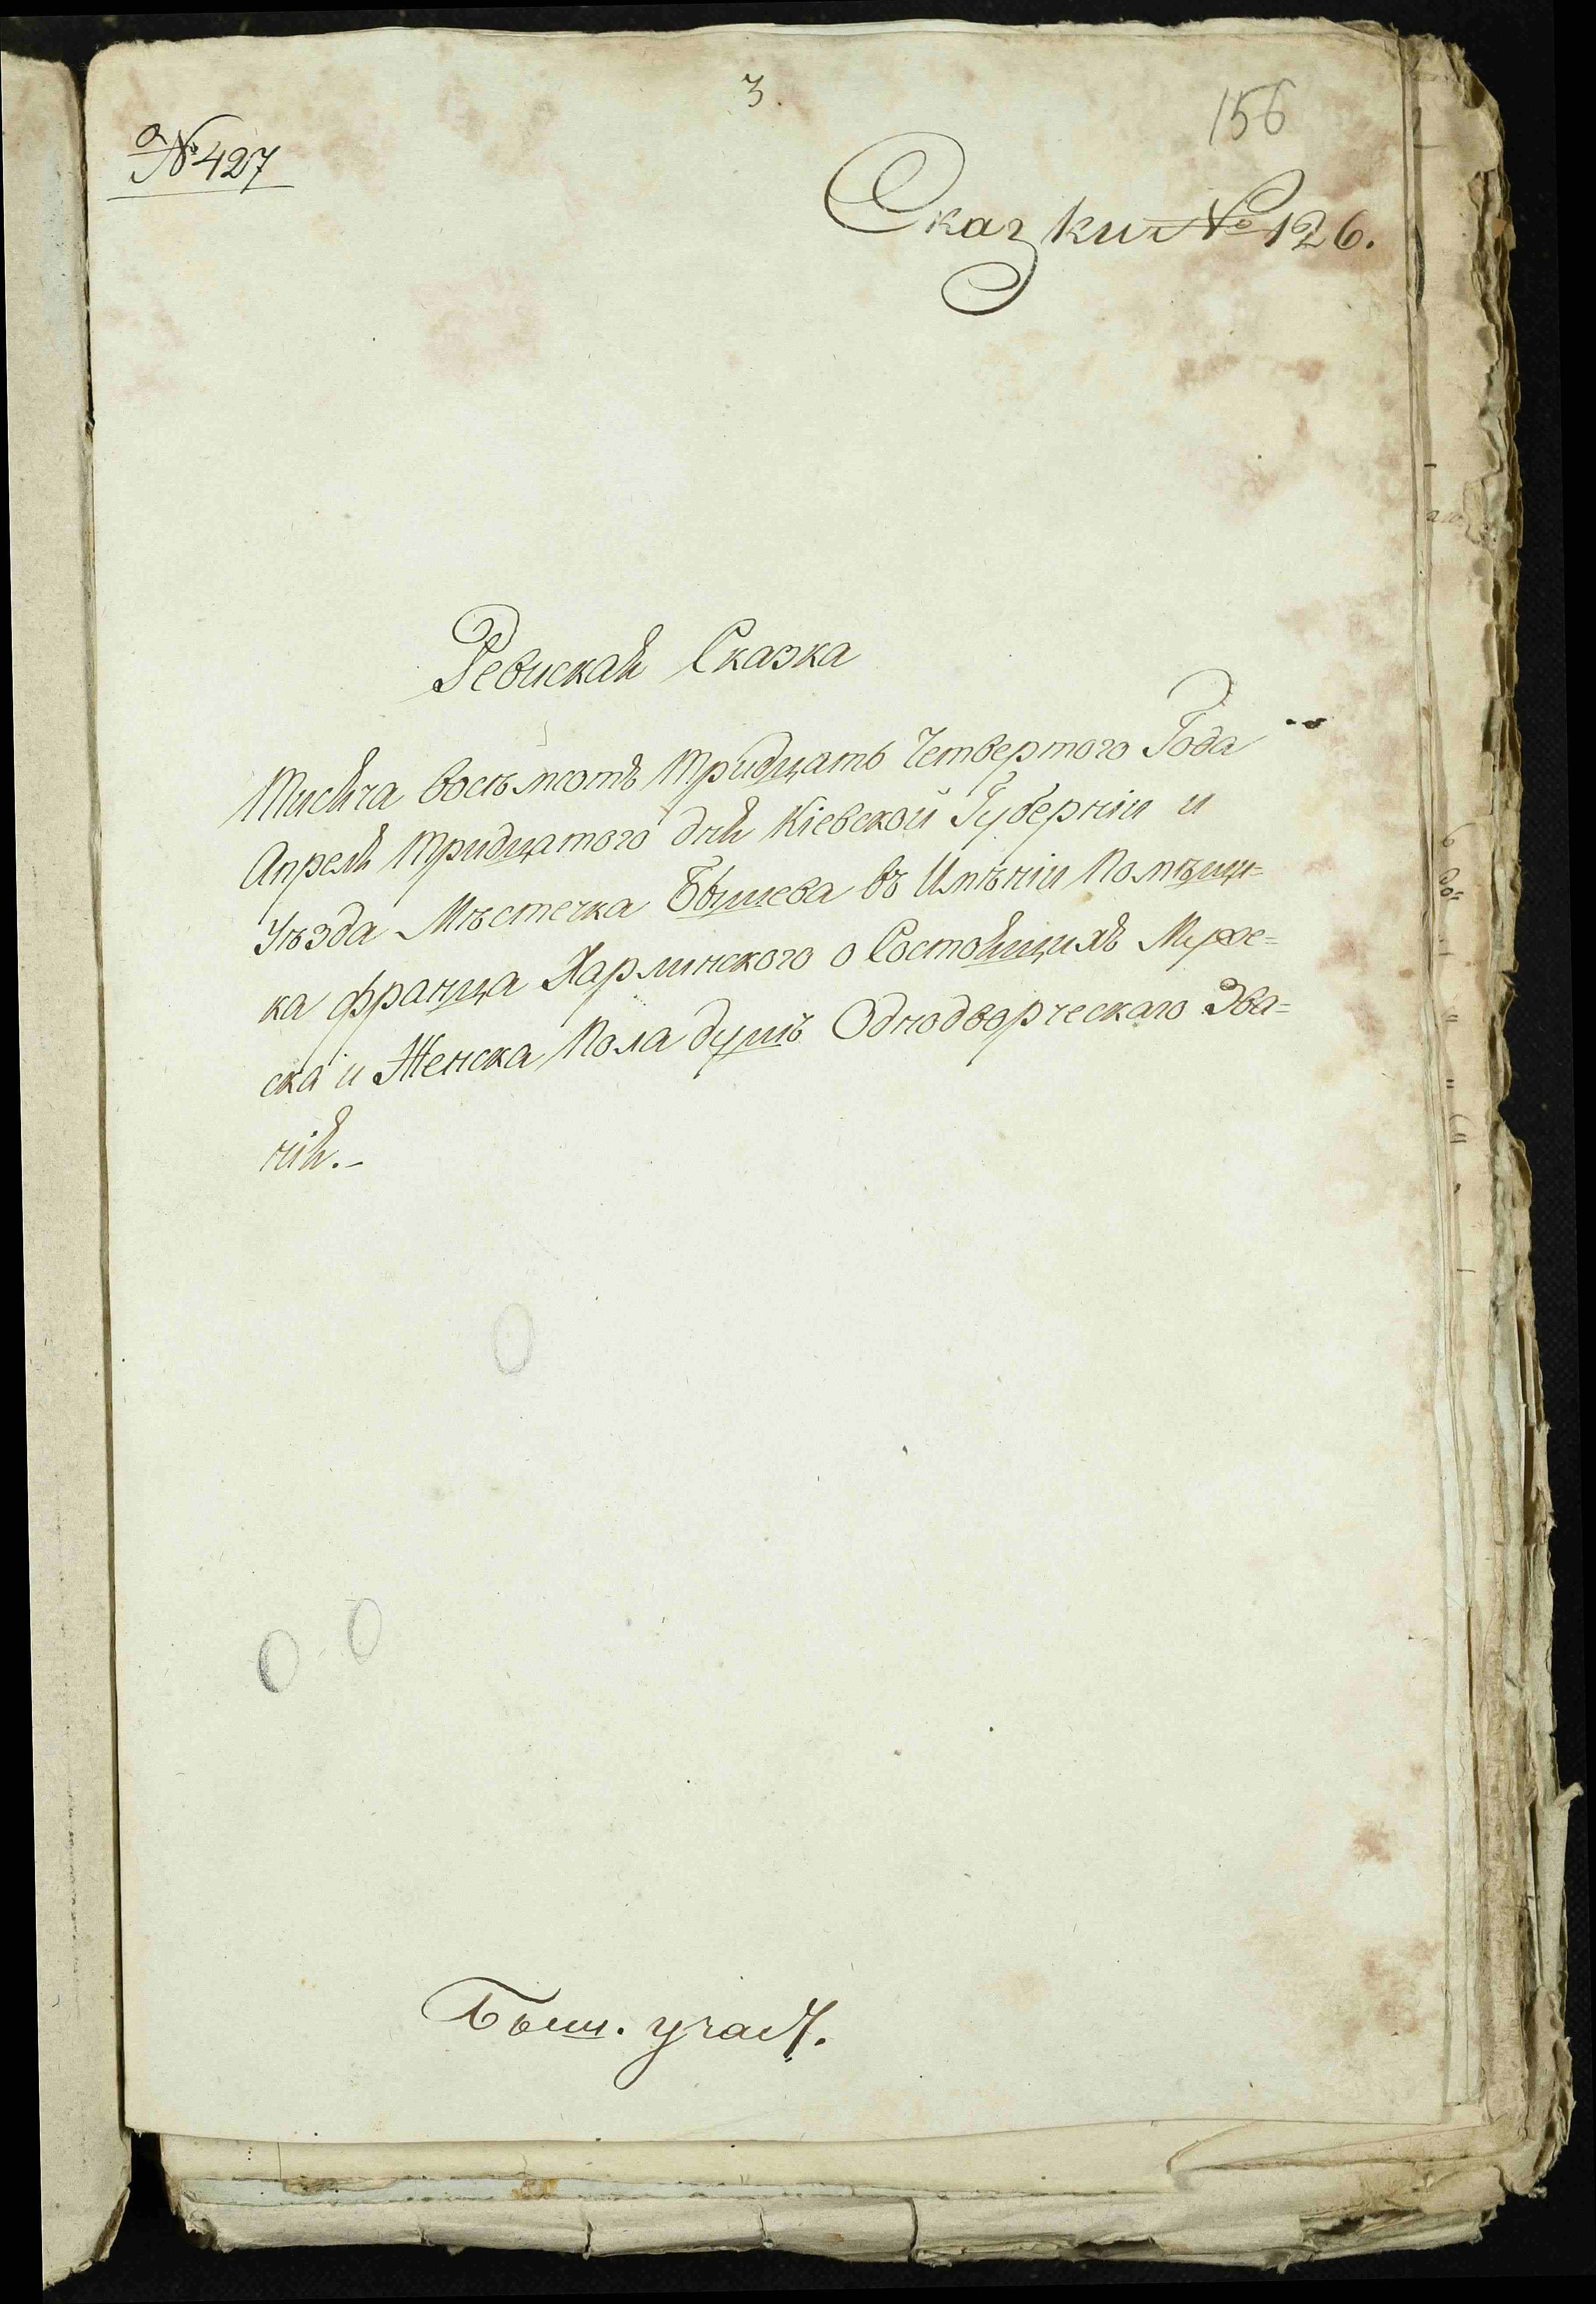 3.
156
№ 427
Сказки № 126.
Ревиская Сказка
Тисяча восѣмсотъ тридцать Четвертого Года
Апреля тридцатого дня Кіевской Губерніи и
Уѣзда Мѣстечка Бышева въ Имѣніи Помѣщи=
ка франца Харлинского о Состоящихъ Муже=
ска и Женска Пола душъ Однодворческаго Зва=
нія.-
Быш. участ.